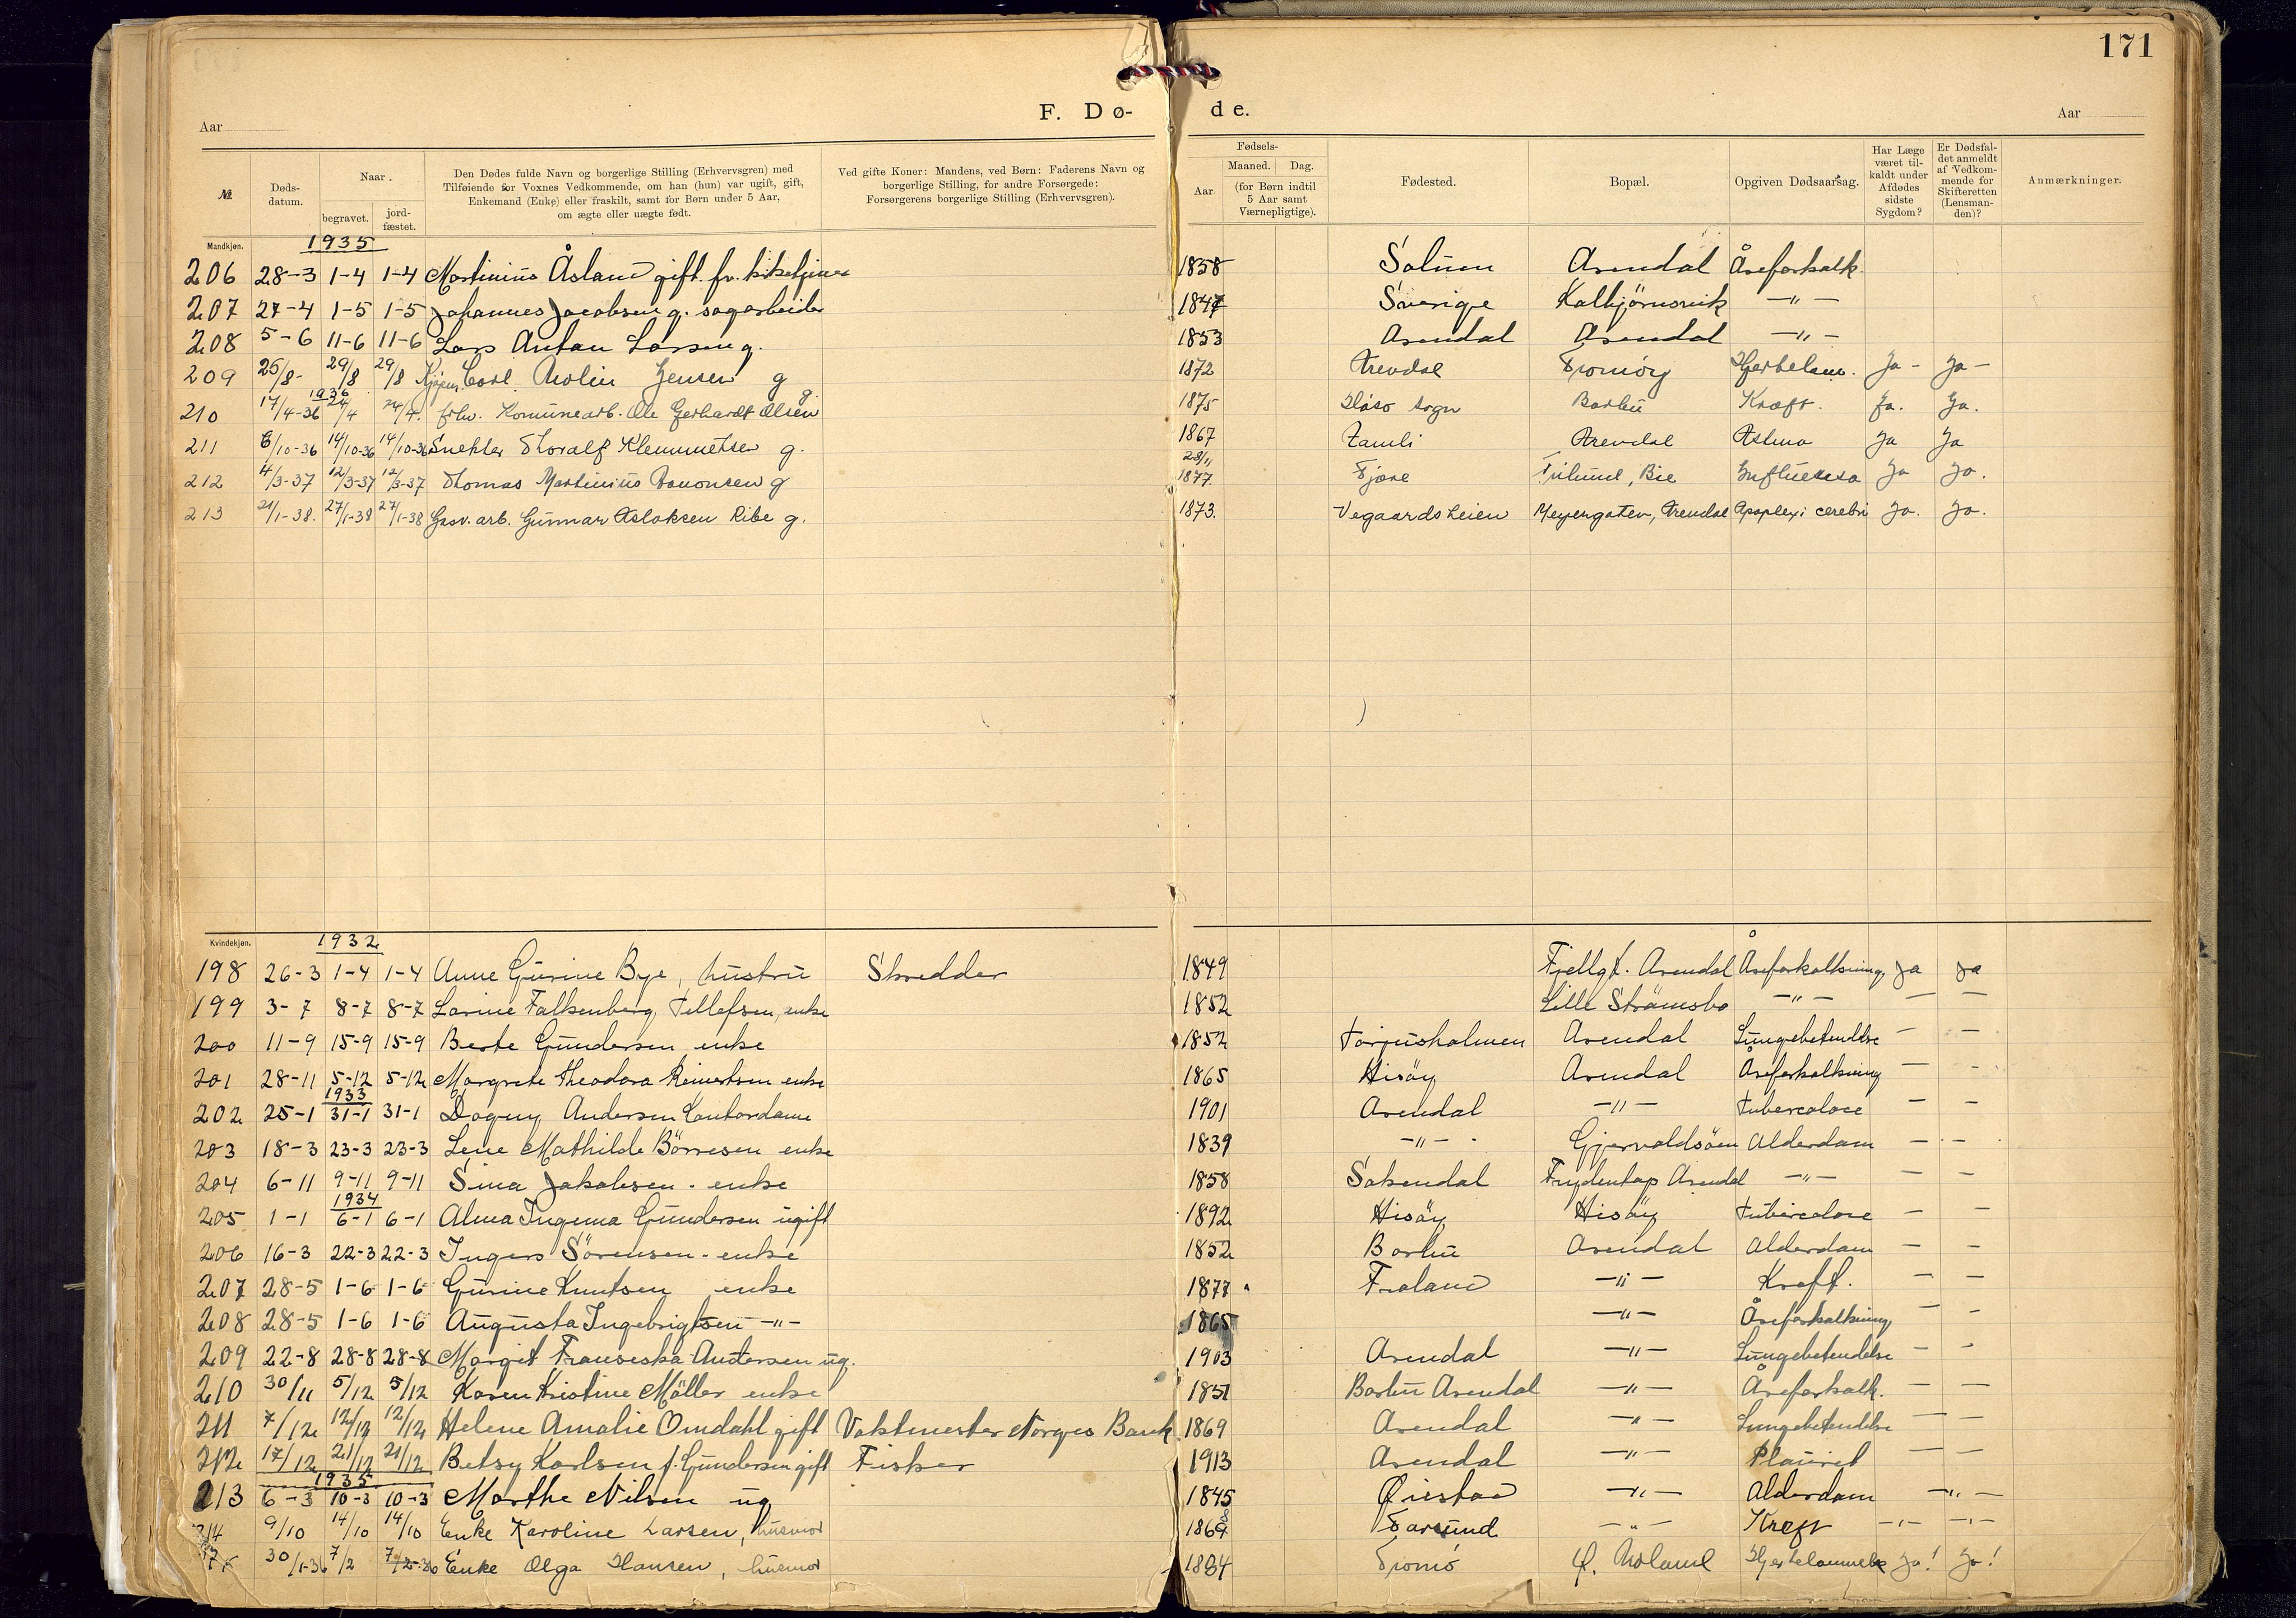 171
F. Dø- de.
Aar Aar
№
Døds-datum.
Naar.
begravet.
jord-fæstet.
Den Dødes fulde Navn og borgerlige Stilling (Erhvervsgren) med
Tilføiende for Voxnes Vedkommende, om han (hun) var ugift, gift,
Enkemand (Enke) eller fraskilt, samt for Børn under 5 Aar,
om ægte eller uægte født.
Ved gifte Koner: Mandens, ved Børn: Faderens Navn og
borgerlige Stilling, for andre Forsørgede:
Forsørgerens borgerlige Stilling (Erhvervsgren).
Fødsels-
Aar.
Maaned. Dag.
(for Børn indtil
5 Aar samt
Værnepligtige).
Fødested.
Bopæl.
Opgiven Dødsaarsag.
Har Læge
været til-
kaldt under
Afdødes
sidste
Sygdom?
Er Dødsfal-
det anmeldt
af Vedkom-
mende for
Skifteretten
(Lensman-
den)?
Anmærkninger.
Mandkjøn.
1935
206 28-3 1-4 1-4 Martinius Åsland gift. fv. 1858 Solum Arendal Åreforkalk.
207 27-4 1-5 1-5 Johannes Jacobsen g. sagarbeider 1847 Sverige Kalbjörnsvik -"-
208 5-6 11-6 11-6 Lars Anton Larsen g. 1853 Arendal Arendal -"-
209 25/8- 29/8 29/8 Kjøpm. Carl Arolin Jensen g 1872 Arendal Tromöy Hjertelam. Ja - Ja -
1936
210 17/4-36 24/4 24/4. frhv. Komunearb. Ole Gerhardt Olsen g. 1875 sogn Barbu Kræft. Ja. Ja.
211 6/10-36 14/10-36 14/10-36 Snekker Thoralf Klemmetsen g. 1867 Åamli Arendal Astma Ja Ja
212 4/3-37 12/3-37 12/3-37 Thomas Martinius Aanonsen g 28/11 1877 Fjære Frilund, Bie Influensa Ja Ja.
213 21/1-38. 27/1-38 27/1-38 Gasv. arb. Gunnar Aslaksen Ribe g. 1873. Vegaardsheien Meyergaten, Arendal Apoplexi cerebri Ja. Ja.
Kvindekjøn.
1932
198 26-3 1-4 1-4 Anne Gurine Bye, hustru Skredder 1849 Fjellgt. Arendal Åreforkalkning Ja Ja
199 3-7 8-7 8-7 Larine Falkenberg Tellefsen, enke 1852 Lille Strömsbo -"- - -
200 11-9 15-9 15-9 Berte Gundersen enke 1852 Torjusholmen Arendal Lungebetendelse - -
201 28-11 5-12 5-12 Margrete Theodora Reinertsen enke 1865 Hisöy Arendal Åreforkalkning - -
1933
202 25-1 31-1 31-1 Dagny Andersen Kontordame 1901 Arendal -"- Tubercolose - -
203 18-3 23-3 23-3 Lene Mathilde Börresen enke 1839 -"- Gjervoldsöen Alderdom - -
204 6-11 9-11 9-11 Sina Jakobsen - enke 1858 Sokendal Arendal -"- - -
1934
205 1-1 6-1 6-1 Alma Ingema Gundersen ugift 1892 Hisöy Hisöy Tubercolose - -
206 16-3 22-3 22-3 Ingers Sörensen - enke 1852 Barbu Arendal Alderdom - -
207 28-5 1-6 1-6 Gurine Knutsen enke 1877 Froland -"- Kreft. - -
208 28-5 1-6 1-6 Augusta Ingebrigtsen -"- 1865 -"- Åreforkalkning - -
209 22-8 28-8 28-8 Margit Franseska Andersen ug. 1903 Arendal -"- Lungebetendelse - -
210 30/11 5/12 5/12 Karen Kristine Möller enke 1851 Barbu Arendal -"- Åreforkalk. - -
211 7/12 12/12 12/12 Helene Amalie Omdahl gift Vaktmester Norges Bank 1869 Arendal -"- Lungebetendelse - -
212 17/12 21/12 21/12 Betsy Karlsen f. Gundersen gift Fisker 1913 Arendal -"- Plaurit - -
1935
213 6-3 10-3 10-3 Marthe Nilsen ug 1845 Øiestad -"- Alderdom -"-
214 9/10 14/10 14/10 Enke Karoline Larsen, husmor 1868 Farsund -"- Kreft -"- -"-
30/1-36 7/2 7/2-36 Enke Olga Hansen, husmor 1884 Tromö Ø. Åsland Hjertelammelse Ja! Ja!